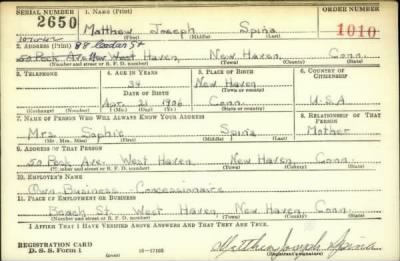 SERIAL NUMBER 1. NAME (Print) ORDER NUMBER
2650 Matthew Joseph Spina 1010
(First) (Middle) (Last)
2. ADDRESS (Print) 88 Cedar St
50 Peck Ave. West Haven, New Haven, Conn.
(Number and street or R. F. D. number) (Town) (County) (State)
3. TELEPHONE 4. AGE IN YEARS 5. PLACE OF BIRTH 6. COUNTRY OF CITIZENSHIP
34 New Haven
DATE OF BIRTH (Town or county)
Apr. 21 1906 Conn. U.S.A
(Exchange) (Number) (Mo.) (Day) (Yr.) (State or country)
7. NAME OF PERSON WHO WILL ALWAYS KNOW YOUR ADDRESS 8. RELATIONSHIP OF THAT PERSON
Mrs. Sophie Spina Mother
(Mr., Mrs., Miss) (First) (Middle) (Last)
9. ADDRESS OF THAT PERSON
50 Peck Ave. West Haven, New Haven, Conn.
(Number and street or R. F. D. number) (Town) (County) (State)
10. EMPLOYER'S NAME
Own Business - Concessionaire
11. PLACE OF EMPLOYMENT OR BUSINESS
Beach St. West Haven, New Haven, Conn.
(Number and street or R. F. D. number) (Town) (County) (State)
I AFFIRM THAT I HAVE VERIFIED ABOVE ANSWERS AND THAT THEY ARE TRUE.
REGISTRATION CARD
D. S. S. Form 1 16-17105 Matthew Joseph Spina